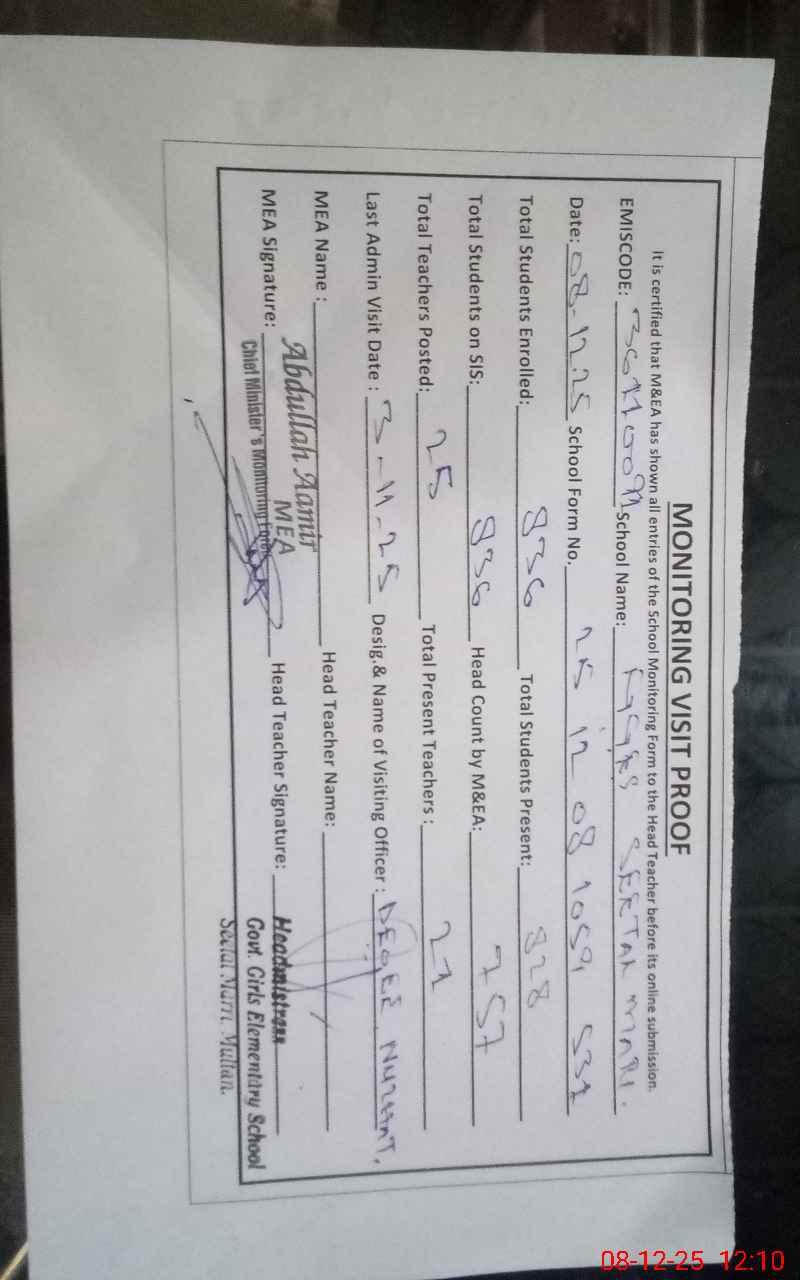 MONITORING VISIT PROOF
It is certified that M&EA has shown all entries of the School Monitoring Form to the Head Teacher before its online submission.
EMISCODE: School Name: MARI.
Date: 08-12-25 School Form No. 25 12 08 1059 531
Total Students Enrolled: 836 Total Students Present: 828
Total Students on SIS: 836 Head Count by M&EA: 757
Total Teachers Posted: 25 Total Present Teachers: 21
Last Admin Visit Date: 3-11-25 Desig.& Name of Visiting Officer: NUZHAT,
MEA Name: Abdullah Aamir Head Teacher Name:
MEA
MEA Signature: Chief Minister's Monitoring Force Head Teacher Signature: Headmistress
Govt. Girls Elementary School
Seetal Marri Multan.
08-12-25 12:10